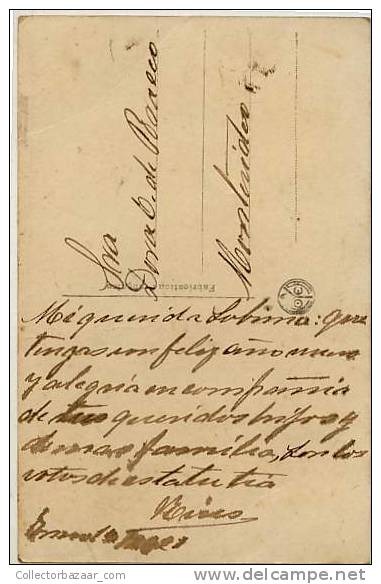 Sra
Dora C. de Barreio
Montevideo
Fabrication
Mi querida Sobrina: que
tengas un feliz año nuevo
y alegria en compañia
de tus queridos hijos y
demas familia, son los
votos de esta tu tia
CollectorBazaar.com
delcampe.net